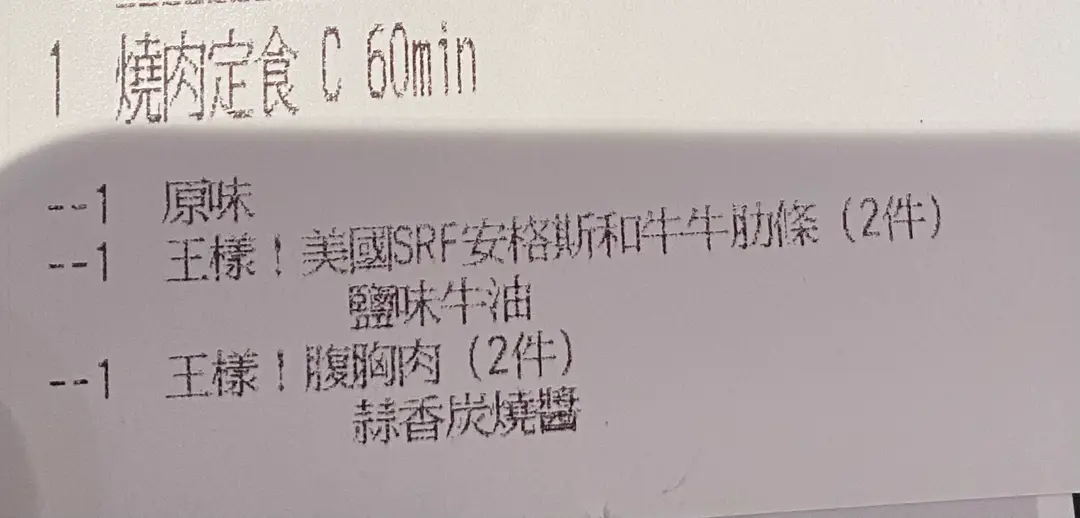 1 燒肉定食 C 60min
--1 原味
--1 王樣！美國SRF安格斯和牛牛肋條 (2件)
鹽味牛油
--1 王樣！腹胸肉 (2件)
蒜香炭燒醬